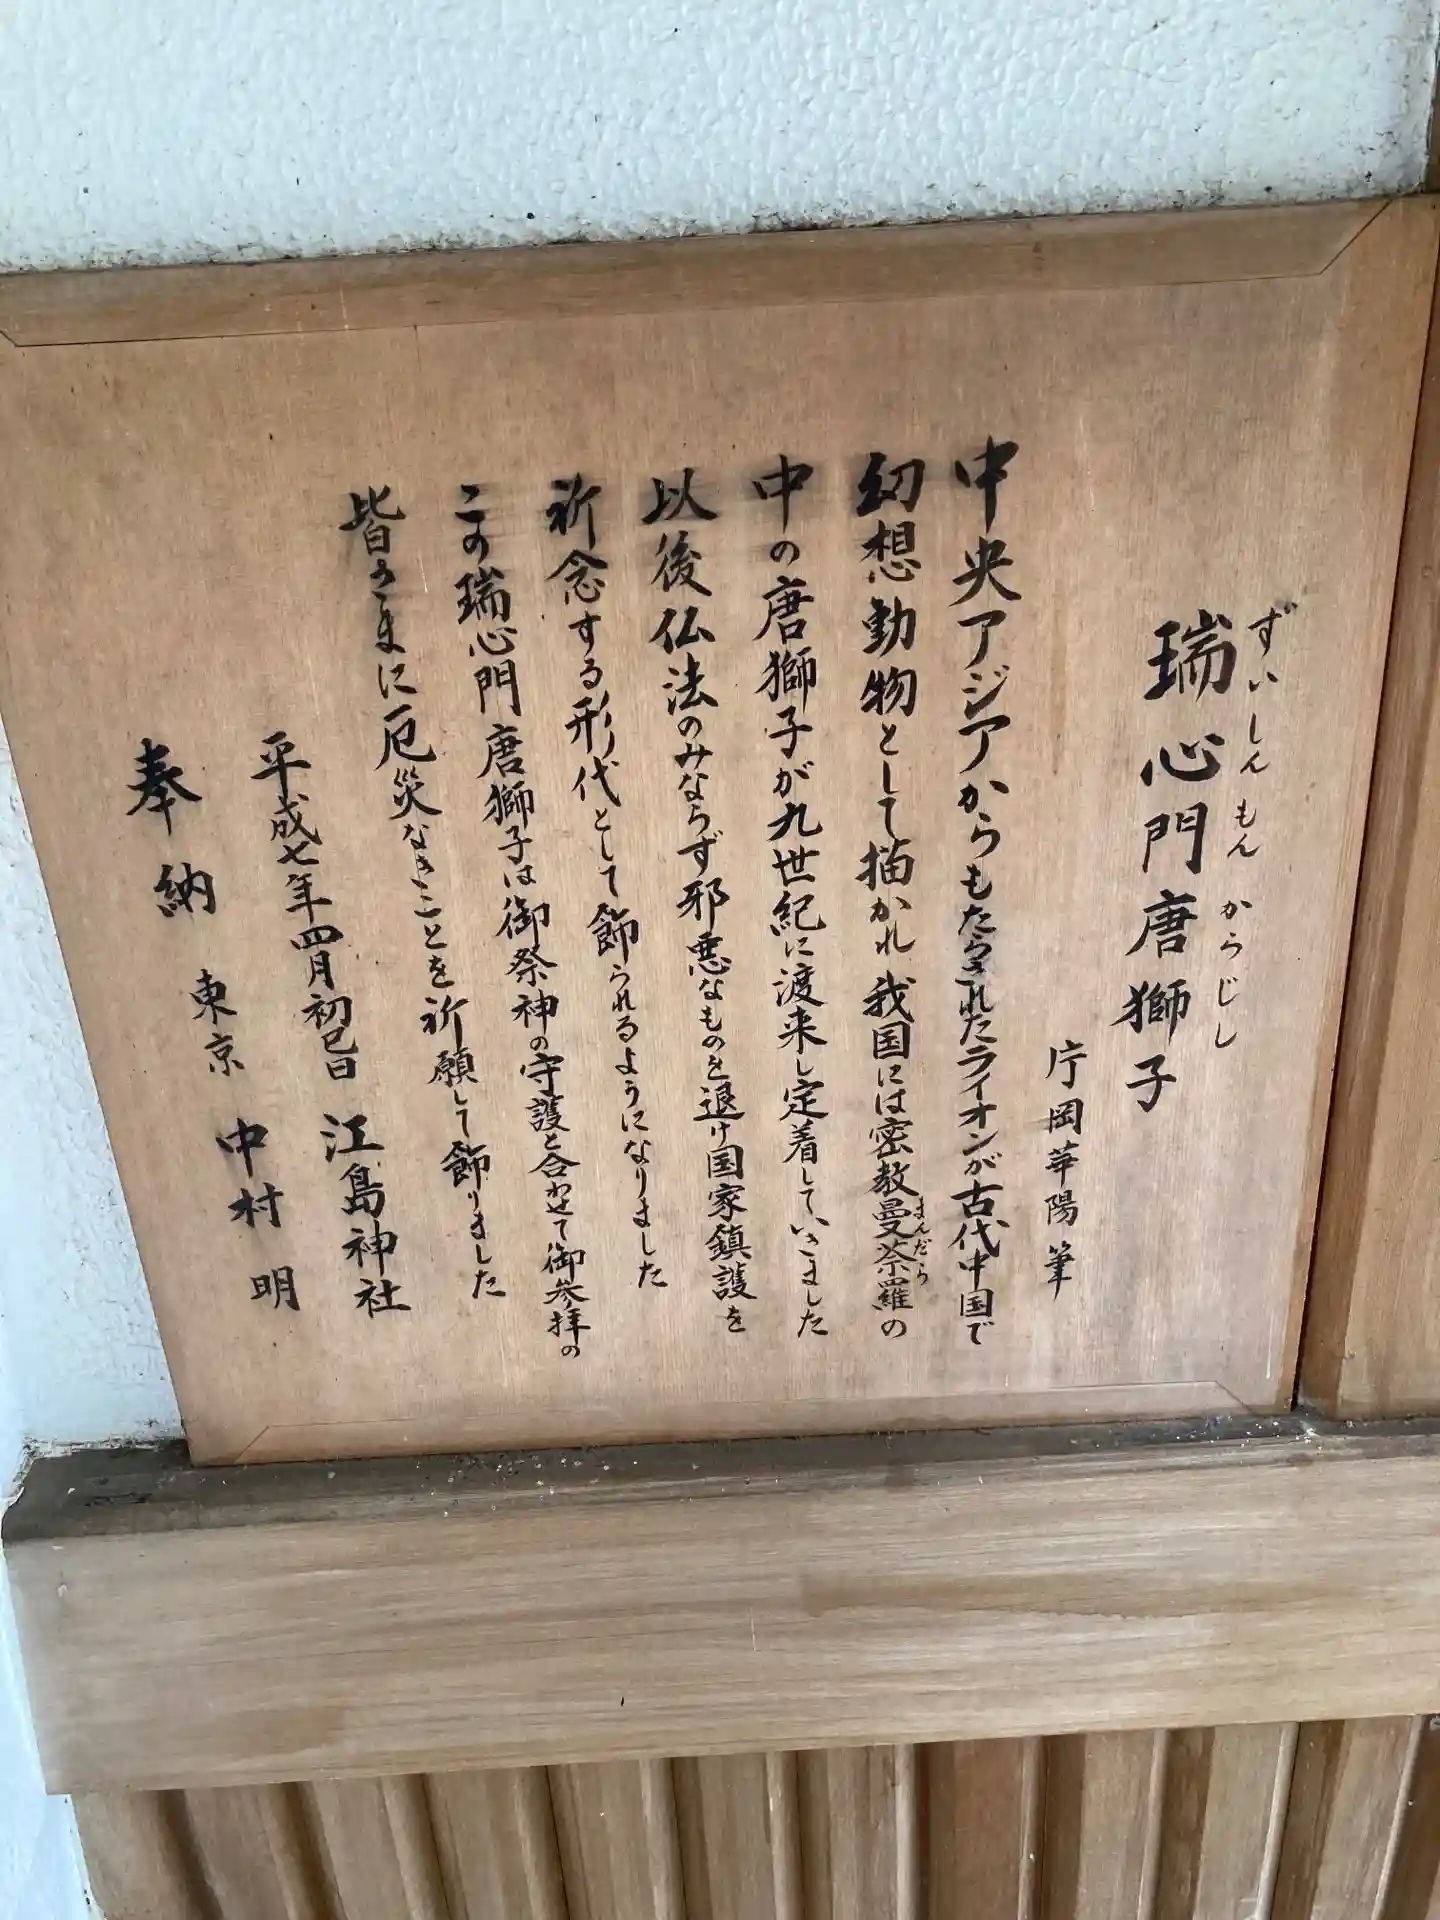 瑞心門唐獅子
ずいしんもん からじし
片岡華陽 筆
中央アジアからもたらされたライオンが古代中国で
幻想動物として描かれ我国には密教曼荼羅の
まんだら
中の唐獅子が九世紀に渡来し定着していきました
以後仏法のみならず邪悪なものを退け国家鎮護を
祈念する形代として飾られるようになりました
この瑞心門唐獅子は御祭神の守護と合わせて御参拝の
皆さまに厄災なきことを祈願して飾りました
平成七年四月初巳日 江島神社
奉納 東京 中村 明